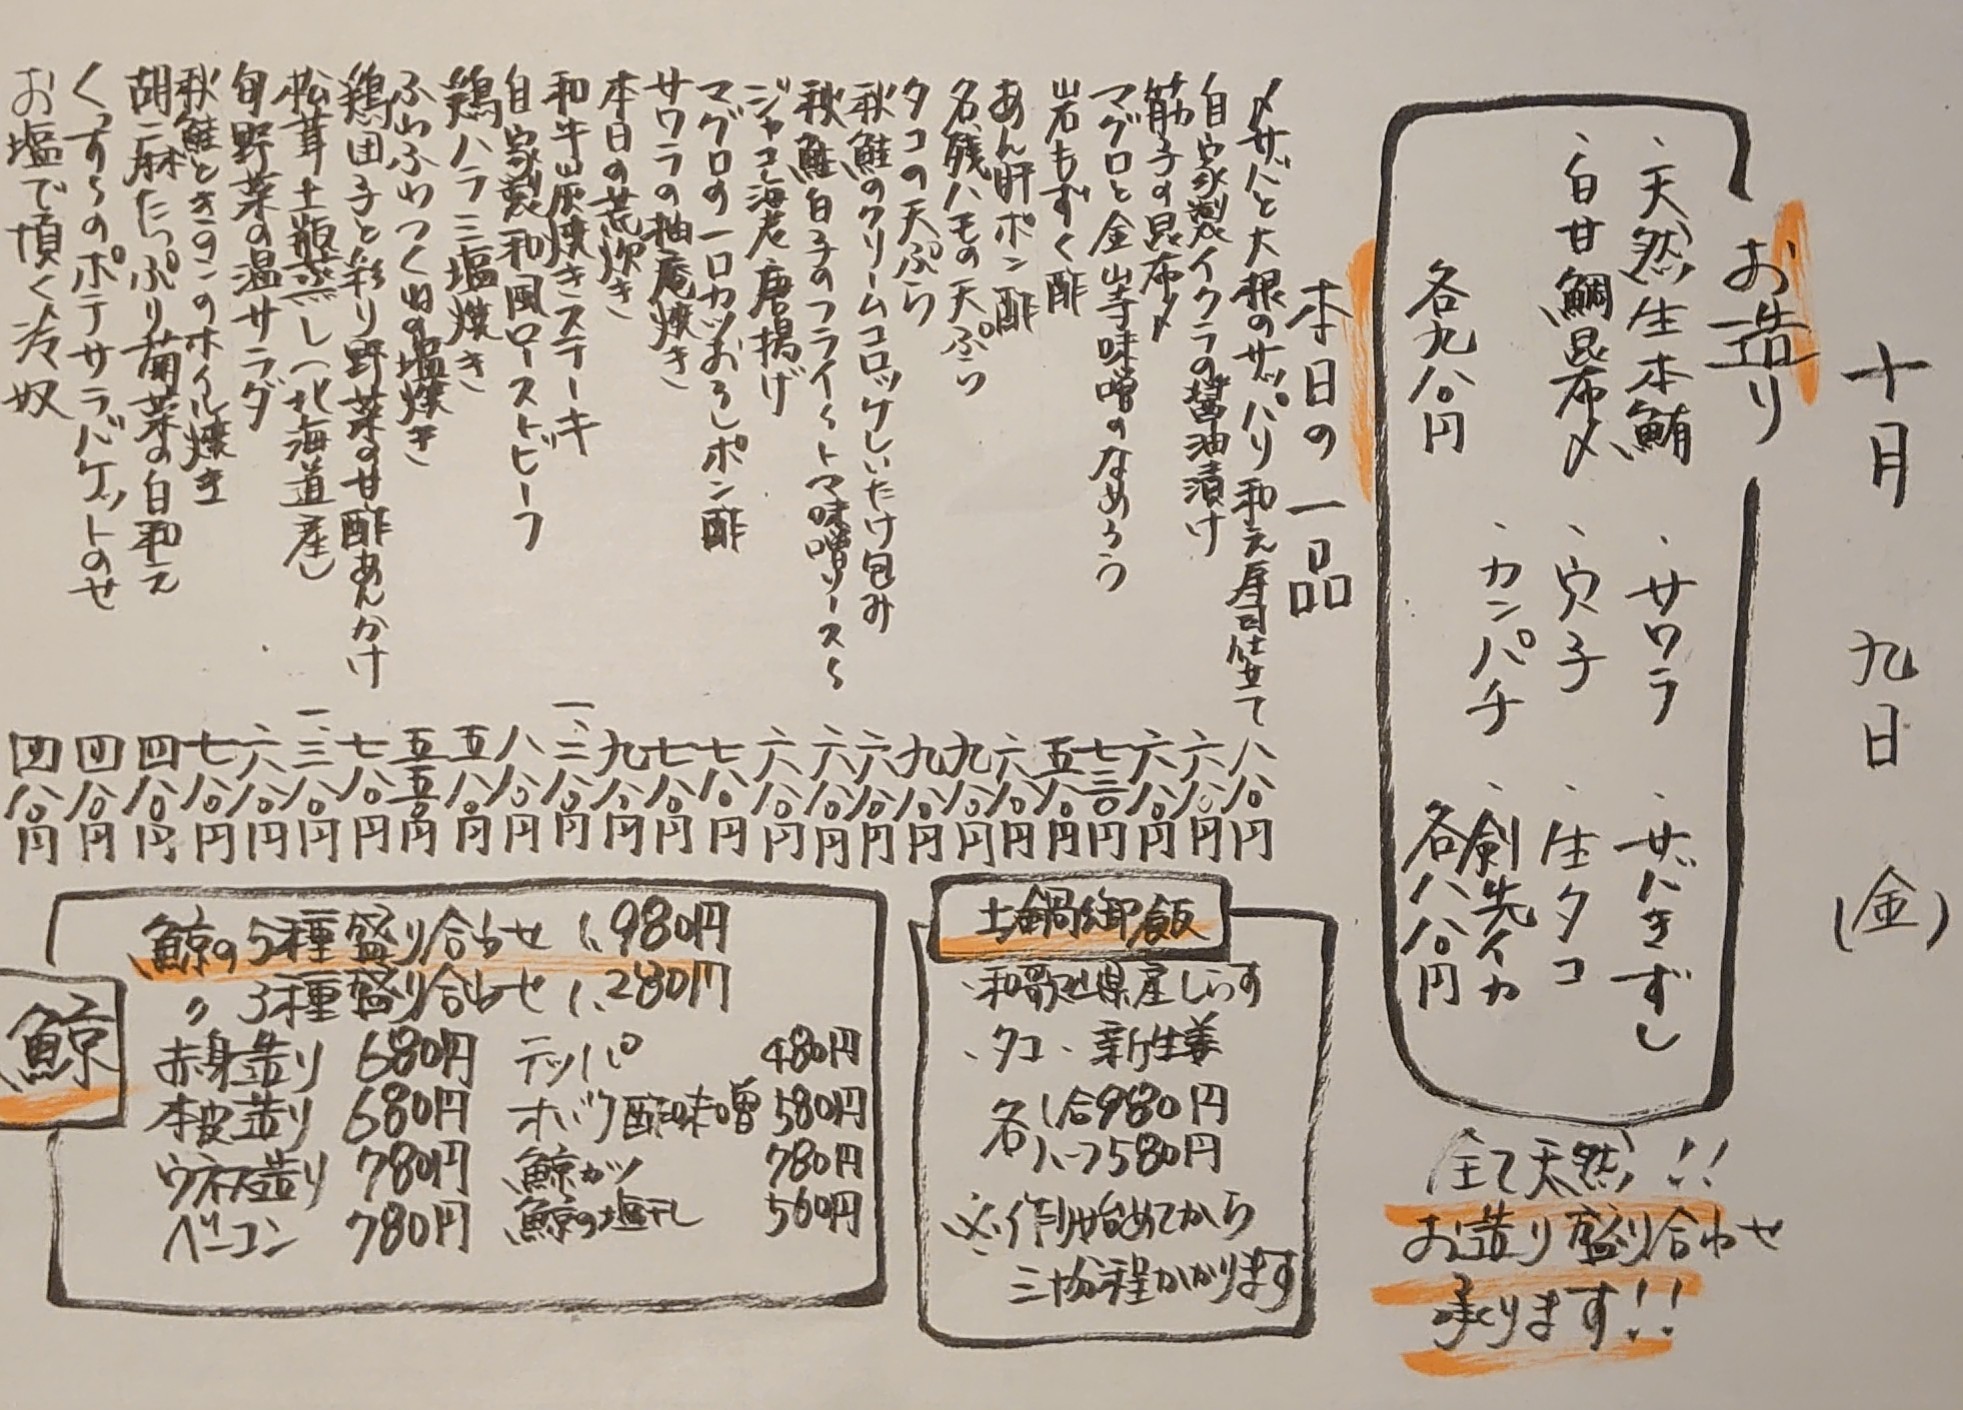 十月 九日 (金)
お造り
・天然生本鮪 ・サワラ ・サバきずし
・白甘鯛昆布〆 ・穴子 ・生タコ
・カンパチ ・剣先イカ
各九八〇円 各八八〇円
全て天然!!
お造り盛り合わせ
承ります!!
本日の一品
〆サバと大根のサッパリ和え寿司仕立て 八八〇円
自家製イクラの醤油漬け 六八〇円
筋子の昆布〆 六八〇円
マグロと金山寺味噌のなめろう 七三〇円
岩もずく酢 五八〇円
あん肝ポン酢 六八〇円
名残ハモの天ぷら 九八〇円
タコの天ぷら 九八〇円
秋鮭のクリームコロッケしいたけ包み 六八〇円
秋鮭白子のフライ〜トマト味噌ソース〜 六八〇円
ジャコ海老唐揚げ 六八〇円
マグロの一口カツおろしポン酢 七八〇円
サワラの柚庵焼き 七八〇円
本日の荒炊き 九八〇円
和牛山灰焼きステーキ 一、二八〇円
自家製和風ローストビーフ 八八〇円
鶏ハラミ塩焼き 五八〇円
ふわふわつくねの塩焼き 五五〇円
鶏団子と彩り野菜の甘酢あんかけ 七八〇円
松茸土瓶蒸し(北海道産) 一、三八〇円
旬野菜の温サラダ 六八〇円
秋鮭ときのこのホイル焼き 七八〇円
胡麻たっぷり菊菜の白和え 四八〇円
くんすらのポテサラバケットのせ 四八〇円
お塩で頂く冷奴 四八〇円
土鍋御飯
・和歌山県産しらす
・タコ ・新生姜
各1合980円
各ハーフ580円
※作り始めてから
三十分程かかります
鯨
鯨の5種盛り合わせ 1,980円
〃 3種盛り合わせ 1,280円
赤身造り 680円 テッパ 480円
本皮造り 680円 オバケ酢味噌 580円
ウネス造り 780円 鯨カツ 780円
ベーコン 780円 鯨の塩干し 560円